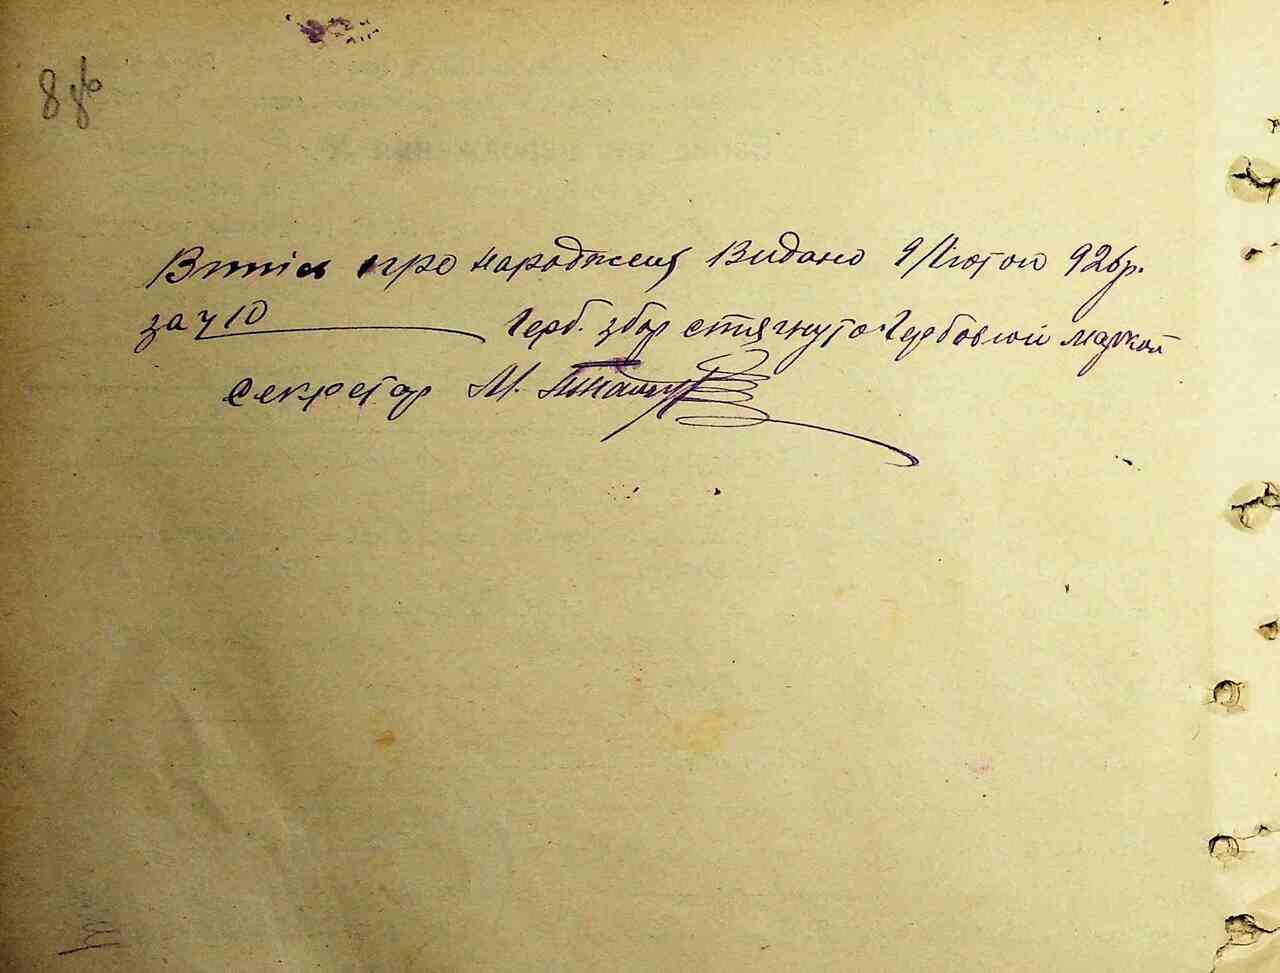 8 зв
Витяг про народження Видано 9/Лютого 926р.
за ч 10 Герб. збор стягнуто Гербовой маркой
Секретар М.